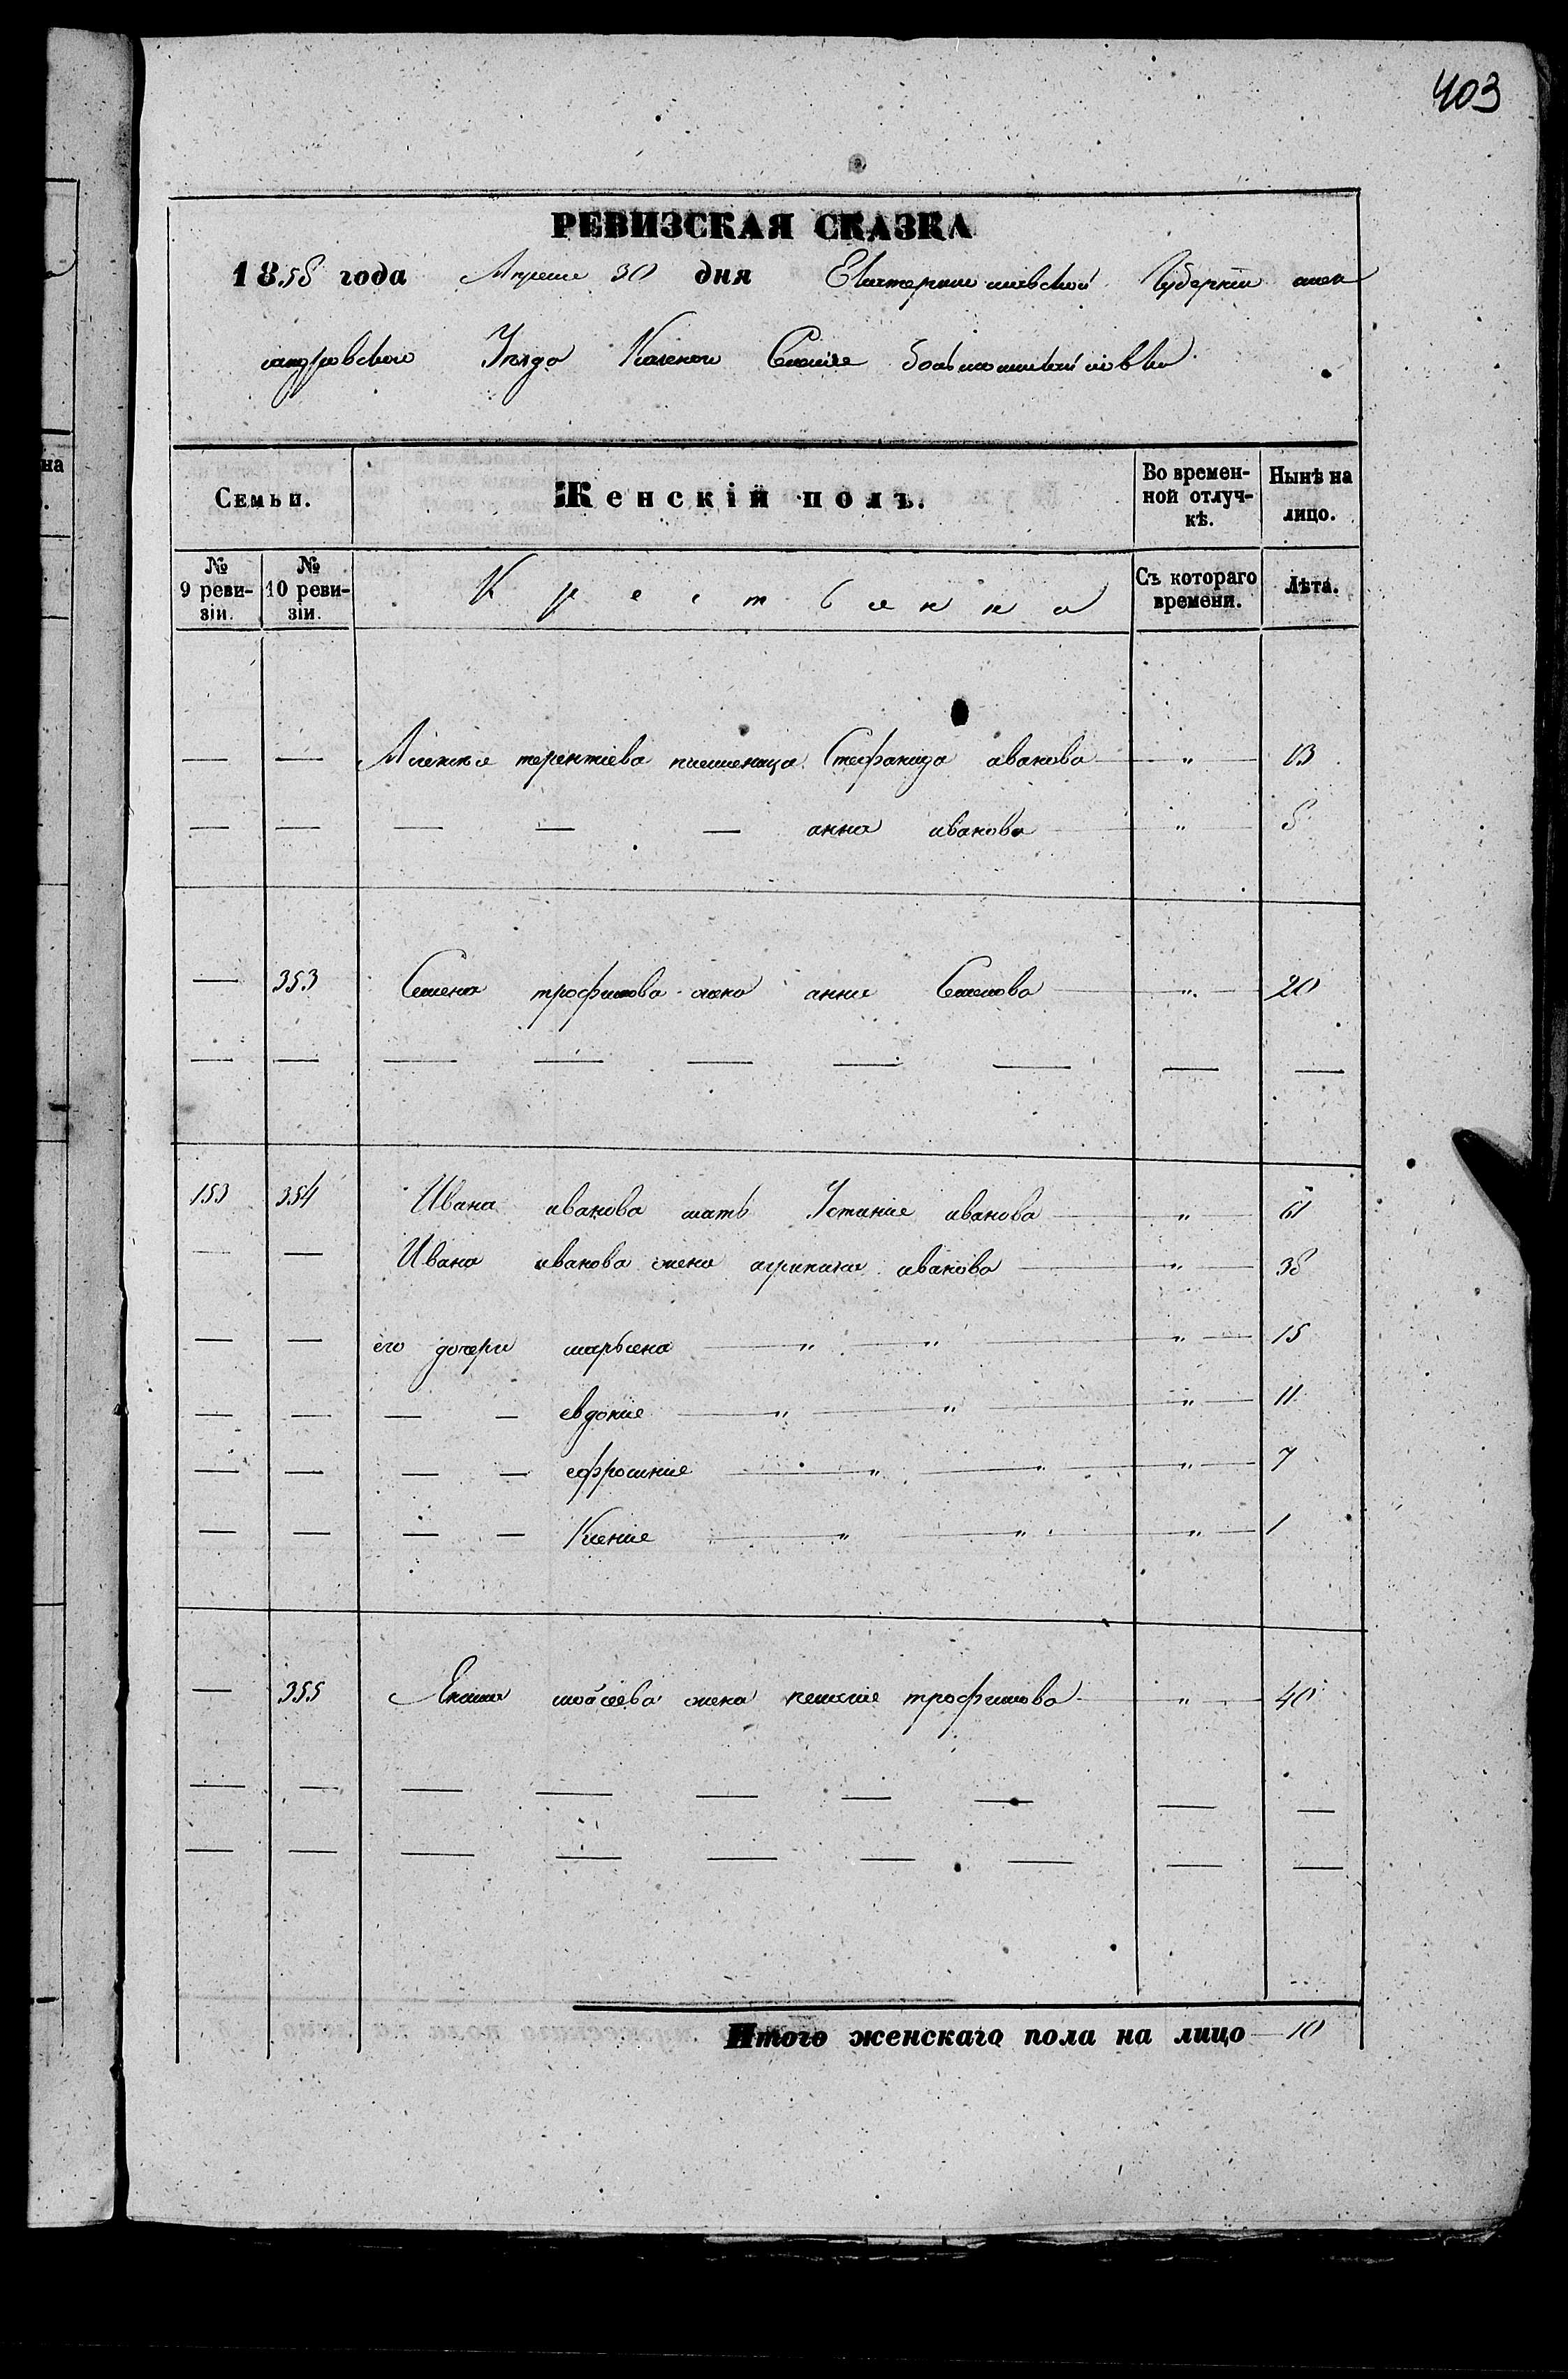 403
РЕВИЗСКАЯ СКАЗКА
1858 года Апреля 30 дня Екатеринославской Губерніи алек
сандровскаго Уѣзда Казеннаго Селенія большо
Семьи. Женскій полъ. Во временной отлучкѣ. Нынѣ на лицо.
№ 9 ревизіи. № 10 ревизіи. Крестьянка Съ котораго времени. Лѣта.
— — терентіева племеница Стефанида иванова — " — 13
— — — — — анна иванова — " — 8
— 353 Семена трофимова жена анна Семенова — " — 20
— — — — — — — — —
153 354 Ивана иванова мать Устинія иванова — " — 61
— — Ивана иванова жена агрипина иванова — " — 38
— — его дочери марьяна — " — " — " — 15
— — — — евдокия — " — " — " — 11
— — — — ефросиния — " — " — " — 7
— — — — Ксения — " — " — " — 1
— 355 Якима мойсеева жена пелагия трофимова — " — 40
— — — — — — — — —
— — — — — — — — —
Итого женскаго пола на лицо — 10
на